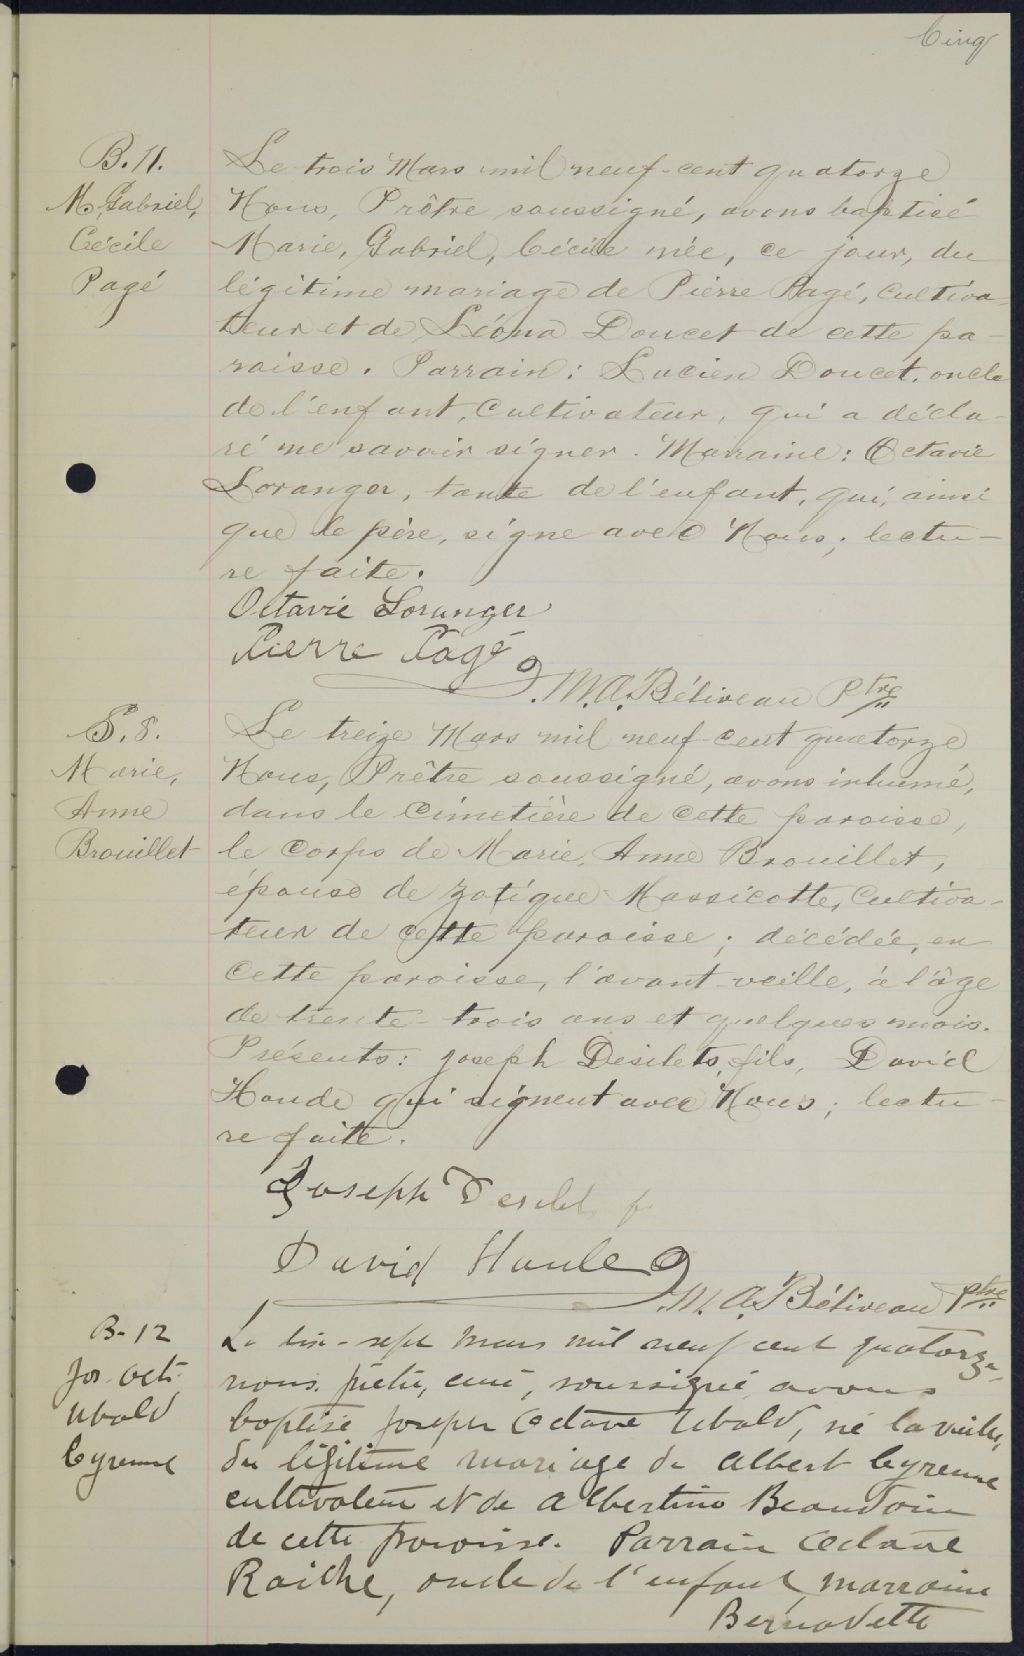 Cinq
B. 11.
M. Gabriel,
Cécile
Pagé
Le trois Mars mil neuf-cent quatorze
Nous, Prêtre soussigné, avons baptisé
Marie, Gabriel, Cécile née, ce jour, du
légitime mariage de Pierre Pagé, cultiva-
teur et de Léona Doucet de cette pa-
roisse. Parrain: Lucien Doucet, oncle
de l'enfant, cultivateur, qui a décla-
ré ne savoir signer. Marraine: Octavie
Loranger, tante de l'enfant, qui, ainsi
que le père, signe avec Nous; lectu-
re faite.
Octavie Loranger
Pierre Pagé
M. A. Béliveau Ptre
S. 8.
Marie,
Anne
Brouillet
Le treize Mars mil neuf-cent quatorze
Nous, Prêtre soussigné, avons inhumé,
dans le cimetière de cette paroisse,
le corps de Marie, Anne Brouillet,
épouse de Zotique Massicotte, cultiva-
teur de cette paroisse; décédée, en
cette paroisse, l'avant-veille, à l'âge
de trente-trois ans et quelques mois.
Présents: Joseph Desilets, fils, David
Houde qui signent avec Nous; lectu-
re faite.
Joseph Desilet f
David Houle
M. A. Béliveau Ptre
B-12
Jos. Oct.
Ubald
Cyrenne
Le dix-sept mars mil neuf cent quatorze,
nous, prêtre, curé, soussigné avons
baptisé Joseph Octave Ubald, né la veille,
du légitime mariage de Albert Cyrenne
cultivateur et de Albertine Beaudoin
de cette paroisse. Parrain Octave
Raiche, oncle de l'enfant, marraine
Bernadette